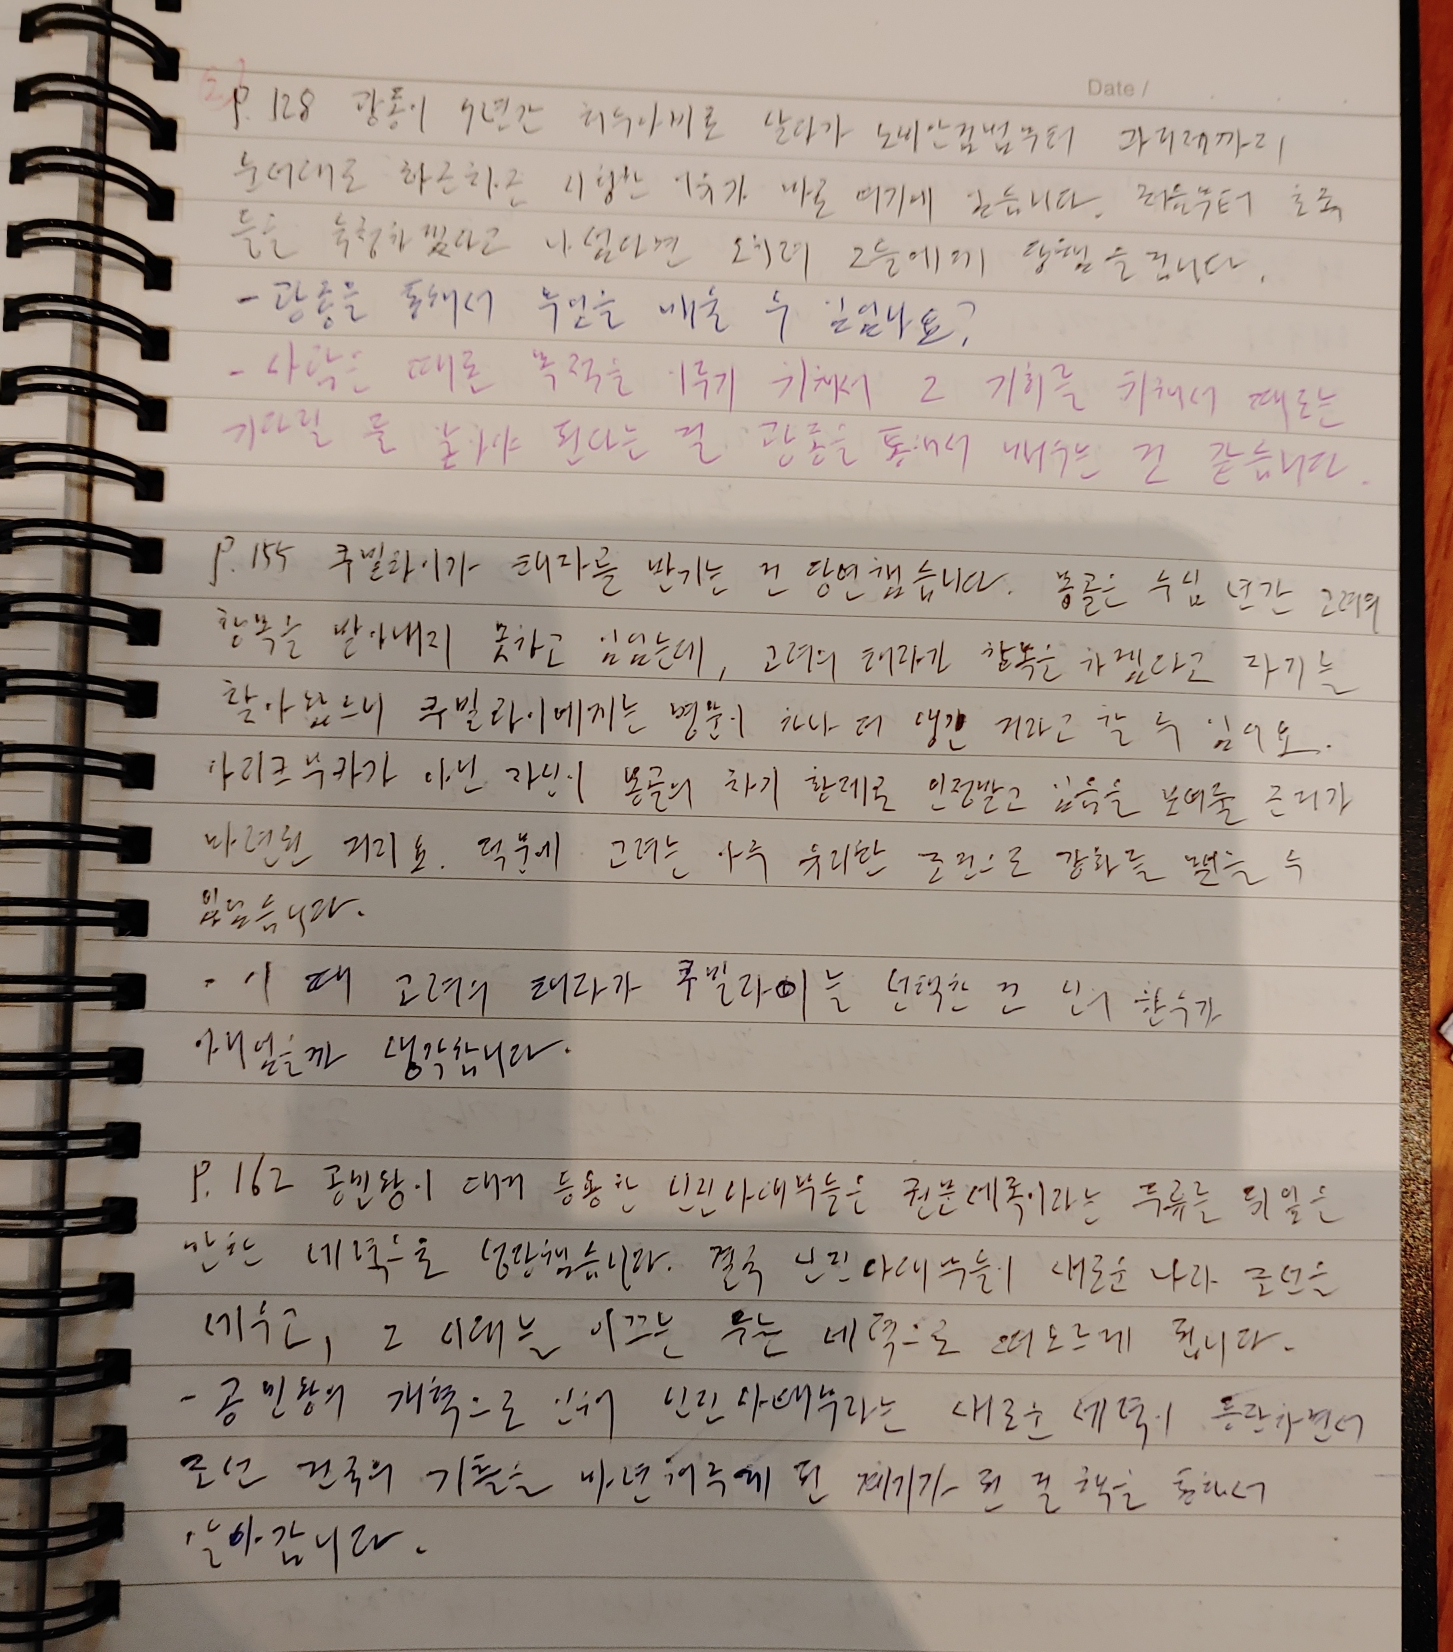 Date /
P. 128 광종이 9년간 허수아비로 살다가 노비안검법부터 과거제까지
순서대로 차근차근 시행한 이유가 바로 여기에 있습니다. 처음부터 호족
들을 숙청하겠다고 나섰다면 오히려 그들에게 당했을 겁니다.
- 광종을 통해서 무엇을 배울 수 있었나요?
- 사람은 때론 목적을 이루기 위해서 그 기회를 위해서 때로는
기다릴 줄 알아야 된다는 걸 광종을 통해서 배우는 것 같습니다.
P. 155 쿠빌라이가 태자를 반기는 건 당연했습니다. 몽골은 수십 년간 고려의
항복을 받아내지 못하고 있었는데, 고려의 태자가 항복을 하겠다고 자기를
찾아왔으니 쿠빌라이에게는 명분이 하나 더 생긴 거라고 할 수 있어요.
아리크부카가 아닌 자신이 몽골의 차기 황제로 인정받고 있음을 보여줄 근거가
마련된 거지요. 덕분에 고려는 아주 유리한 조건으로 강화를 맺을 수
있었습니다.
- 이 때 고려의 태자가 쿠빌라이를 선택한 건 신의 한수가
아니었을까 생각합니다.
P. 162 공민왕이 대거 등용한 신진사대부들은 권문세족이라는 주류를 뒤엎을
만한 세력으로 성장했습니다. 결국 신진사대부들이 새로운 나라 조선을
세우고, 그 시대를 이끄는 주는 세력으로 떠오르게 됩니다.
- 공민왕의 개혁으로 인해 신진사대부라는 새로운 세력이 등장하면서
조선 건국의 기틀을 마련해주게 된 계기가 된 걸 책을 통해서
알아갑니다.